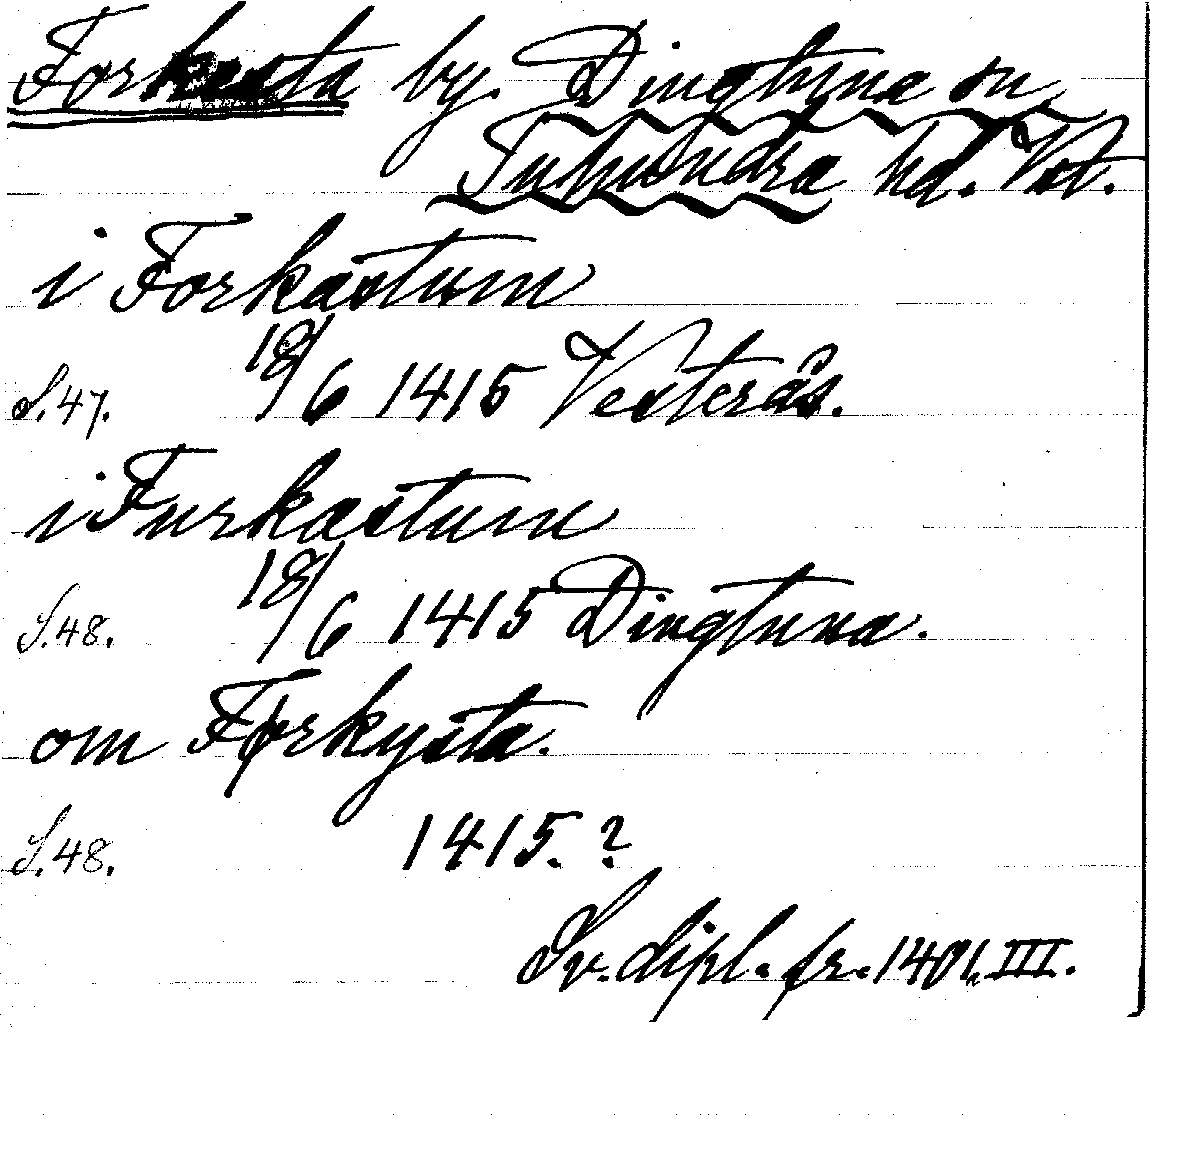 Forkasta by. Dingtuna sn
Tuhundra hd. Vst.
i Forkastum
S. 47. 18/6 1415 Vesterås.
i Furkastum
S. 48. 18/6 1415 Dingtuna.
om Førkysta.
S. 48. 1415. ?
Sv. dipl. fr. 1401. III.